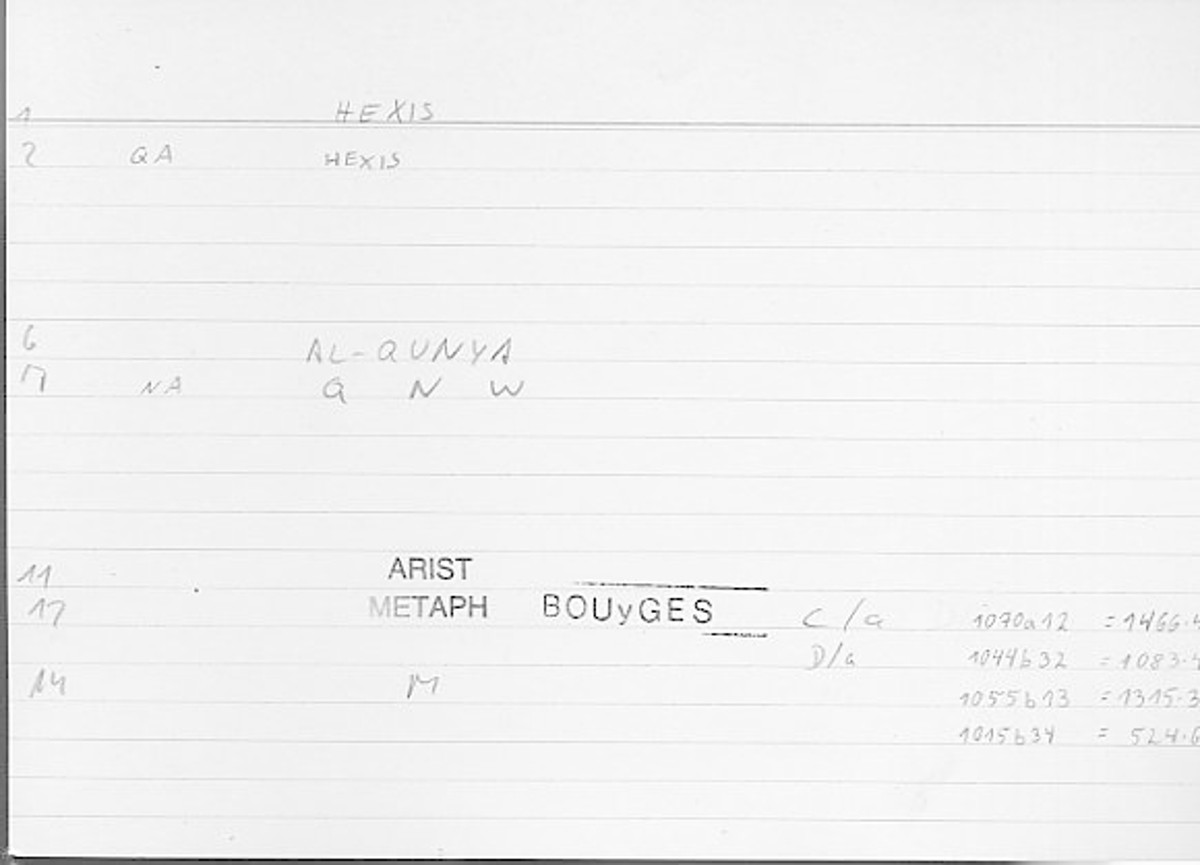 1 HEXIS
2 QA HEXIS
6 AL-QUNYA
7 NA Q N W
11 ARIST
12 METAPH BOUyGES C/a 1070a12 =1466.4
D/a 1044b32 =1083.4
14 M 1055b13 =1315.3
1015b34 = 524.6